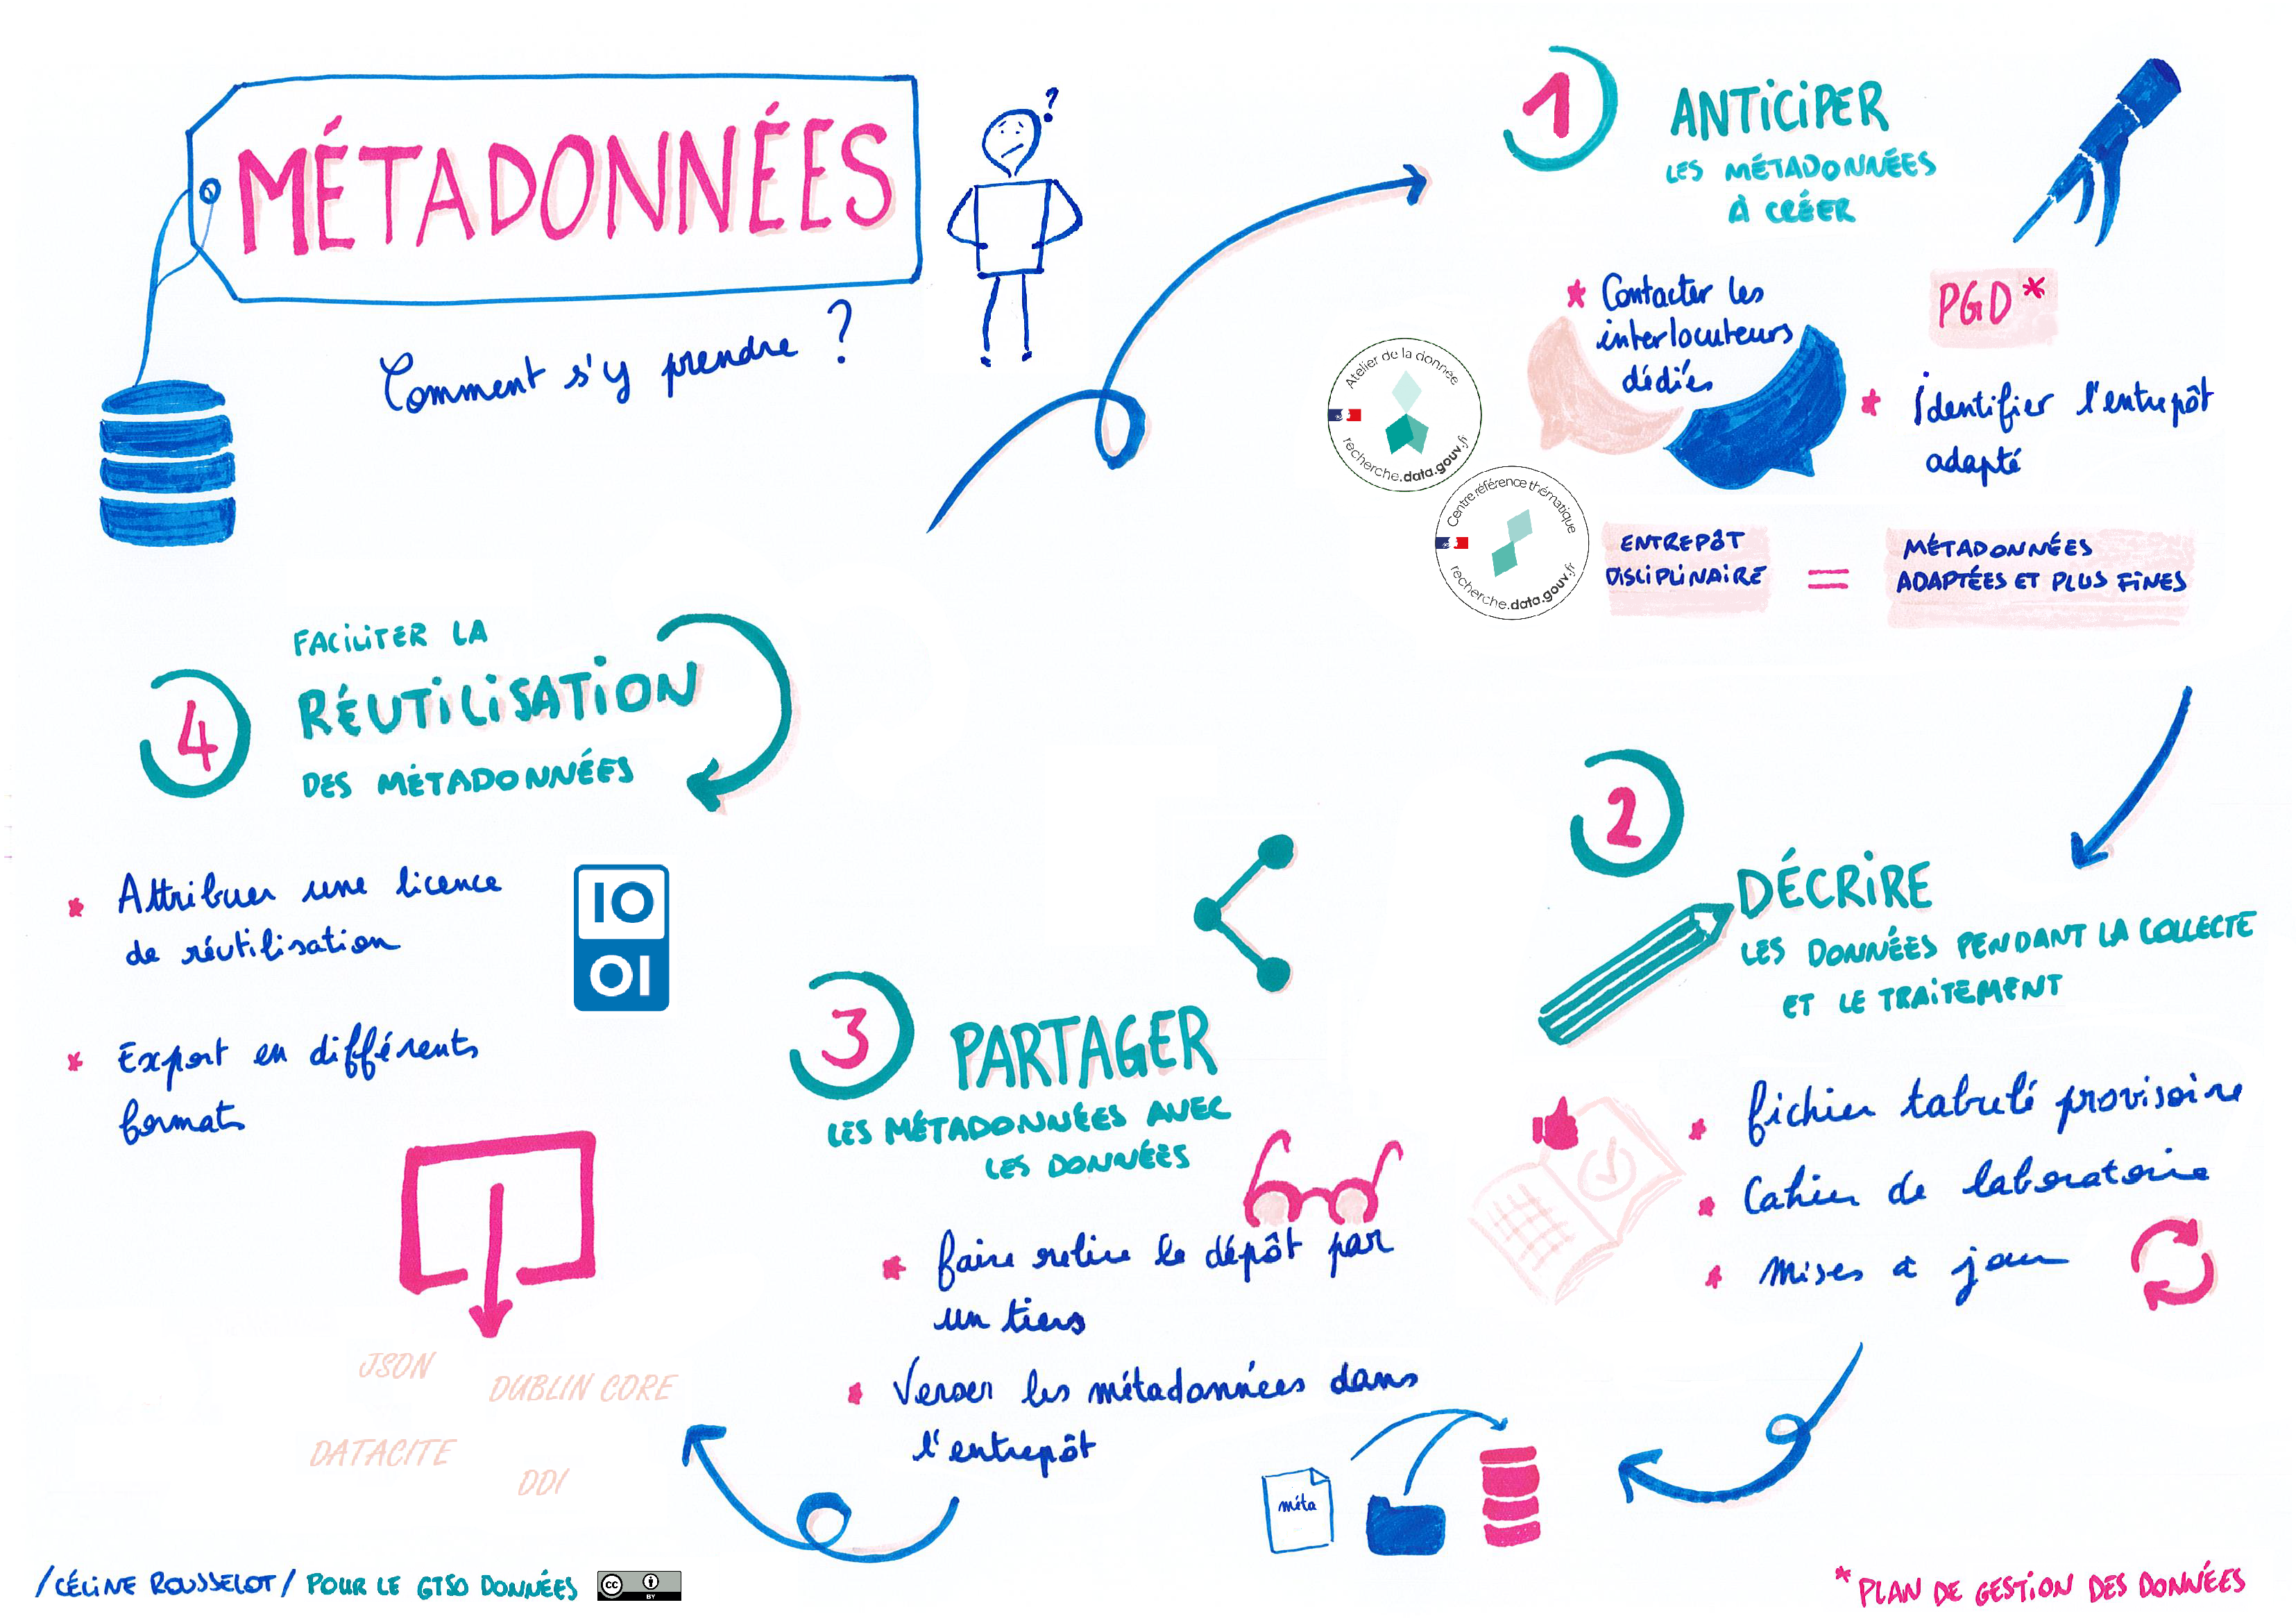 MÉTADONNÉES
?
Comment s'y prendre ?
1
ANTICIPER
LES MÉTADONNÉES
À CRÉER
* Contacter les
interlocuteurs
dédiés
Atelier de la donnée
recherche.data.gouv.fr
Centre référence thématique
recherche.data.gouv.fr
PGD*
* Identifier l'entrepôt
adapté
ENTREPÔT
DISCIPLINAIRE
=
MÉTADONNÉES
ADAPTÉES ET PLUS FINES
2
DÉCRIRE
LES DONNÉES PENDANT LA COLLECTE
ET LE TRAITEMENT
* fichier tabulé provisoire
* Cahier de laboratoire
* Mises à jour
3
PARTAGER
LES MÉTADONNÉES AVEC
LES DONNÉES
* faire relire le dépôt par
un tiers
* Verser les métadonnées dans
l'entrepôt
méta
4
FACILITER LA
RÉUTILISATION
DES MÉTADONNÉES
* Attribuer une licence
de réutilisation
10
01
* Export en différents
formats
JSON
DUBLIN CORE
DATACITE
DDI
/CÉLINE ROUSSELOT/ POUR LE GTSO DONNÉES
cc BY
* PLAN DE GESTION DES DONNÉES